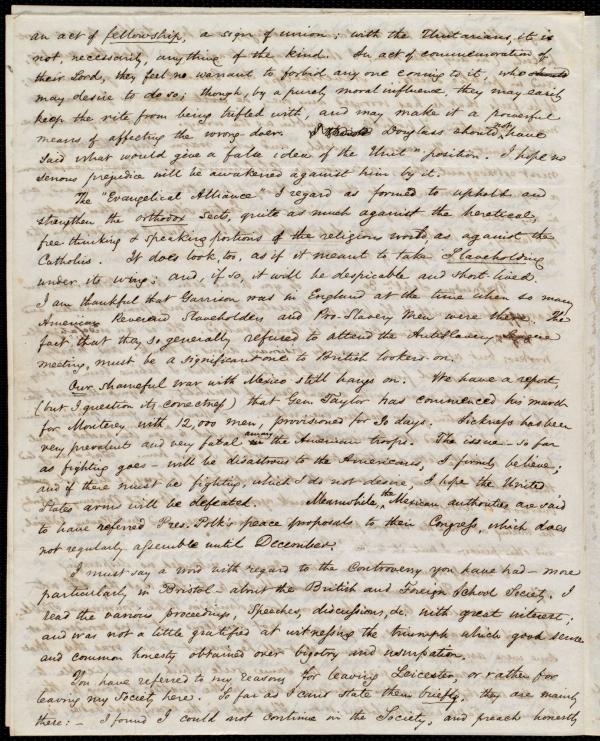 an act of fellowship, a sign of union; with the Unitarians, it is
not, necessarily, anything of the kind. In act of commemoration of
their Lord, they feel no warrant to forbid any one coming to it, who
may desire to do so; though, by a purely moral influence, they may easily
keep the rite from being trifled with, and may make it a powerful
means of affecting the wrong-doer. Douglass should have
said what would give a false idea of the Unitn position. I hope no
serious prejudice will be awakened against him by it.
The "Evangelical Alliance" I regard as formed to uphold and
strengthen the orthodox sects, quite as much against the heretical,
free thinking & speaking portions of the religious world, as against the
Catholics. It does look, too, as if it meant to take Slaveholding
under its wing; and, if so, it will be despicable and short lived.
I am thankful that Garrison was in England at the time when so many
American Reverend Slaveholders and Pro-Slavery Men were there. The
fact that they so generally refused to attend the Antislavery League
meeting, must be a significant one to British lookers-on.
Our shameful war with Mexico still hangs on. We have a report,
(but I question its correctness) that Gen. Taylor has commenced his march
for Monterey with 12,000 men, provisioned for 30 days. Sickness has been
very prevalent and very fatal among the American troops. The issue - so far
as fighting goes - will be disastrous to the Americans, I firmly believe;
and if there must be fighting, which I do not desire, I hope the United
States arms will be defeated. Meanwhile, the Mexican authorities are said
to have referred Pres. Polk's peace proposals to their Congress, which does
not regularly assemble until December.
I must say a word with regard to the Controversy you have had - more
particularly in Bristol - about the British and Foreign School Society. I
read the various proceedings, speeches, discussions, &c. with great interest;
and was not a little gratified at witnessing the triumph which good sense
and common honesty obtained over bigotry and usurpation.
You have referred to my reasons for leaving Leicester, or rather for
leaving my Society here. So far as I can state them briefly, they are mainly
these: - I found I could not continue in the Society, and preach honestly